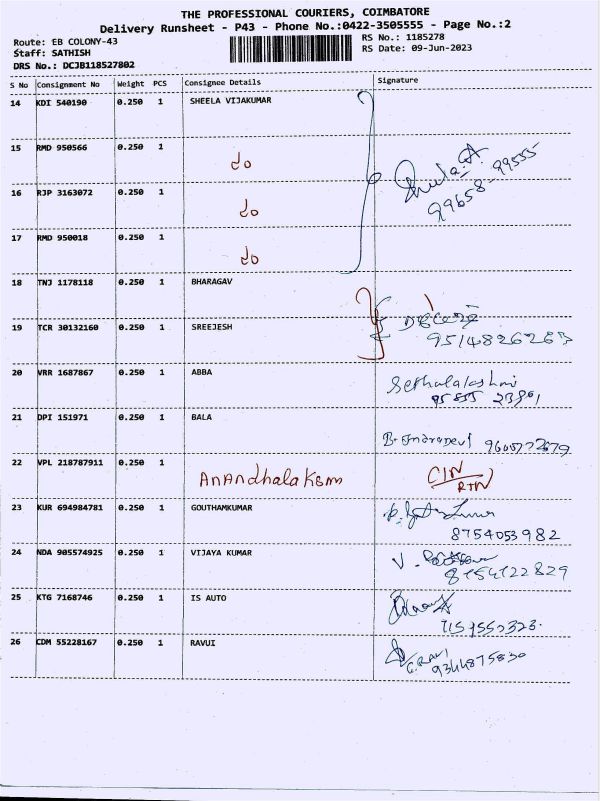 THE PROFESSIONAL COURIERS, COIMBATORE
Delivery Runsheet - P43 - Phone No.:0422-3505555 - Page No.:2
Route: EB COLONY-43 RS No.: 1185278
Staff: SATHISH RS Date: 09-Jun-2023
DRS No.: DCJB118527802
S No Consignment No Weight PCS Consignee Details Signature
14 KDI 540190 0.250 1 SHEELA VIJAKUMAR
15 RMD 950566 0.250 1 do
Sheela.A
99658-99555
16 RJP 3163072 0.250 1 do
17 RMD 950018 0.250 1 do
18 TNJ 1178118 0.250 1 BHARAGAV
19 TCR 30132160 0.250 1 SREEJESH
9514826263
20 VRR 1687867 0.250 1 ABBA
Sethulalakshmi
21 DPI 151971 0.250 1 BALA
B. Indradevi
22 VPL 218787911 0.250 1 Anandhalaksm CIN/RTN
23 KUR 694984781 0.250 1 GOUTHAMKUMAR
8754053982
24 NDA 905574925 0.250 1 VIJAYA KUMAR V.
8754122829
25 KTG 7168746 0.250 1 IS AUTO
26 CDM 55228167 0.250 1 RAVUI G. RAVI
9344875830